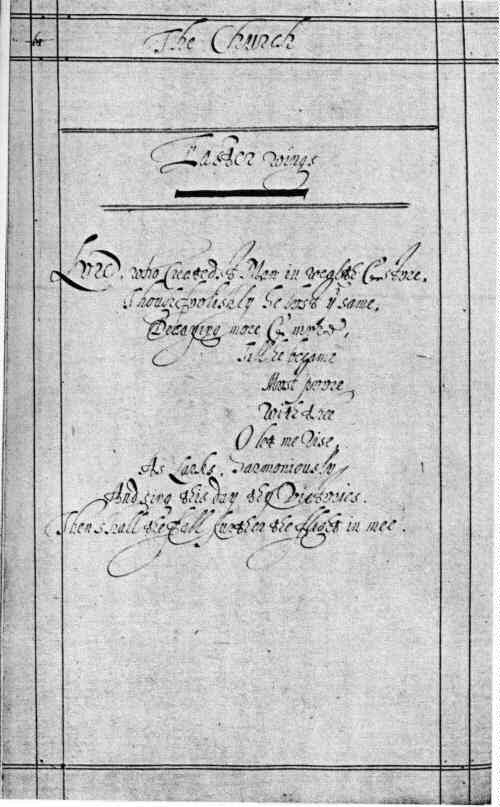 The Church
Easter wings
Lord, who Createdst Man in wealth & store,
Though foolishly he lost yͤ same,
Decaying more & more,
Till he became
Most poore
With thee
O let me Rise,
As Larks, harmoniously
And sing this day thy Victories.
Then shall the fall further the flight in mee.